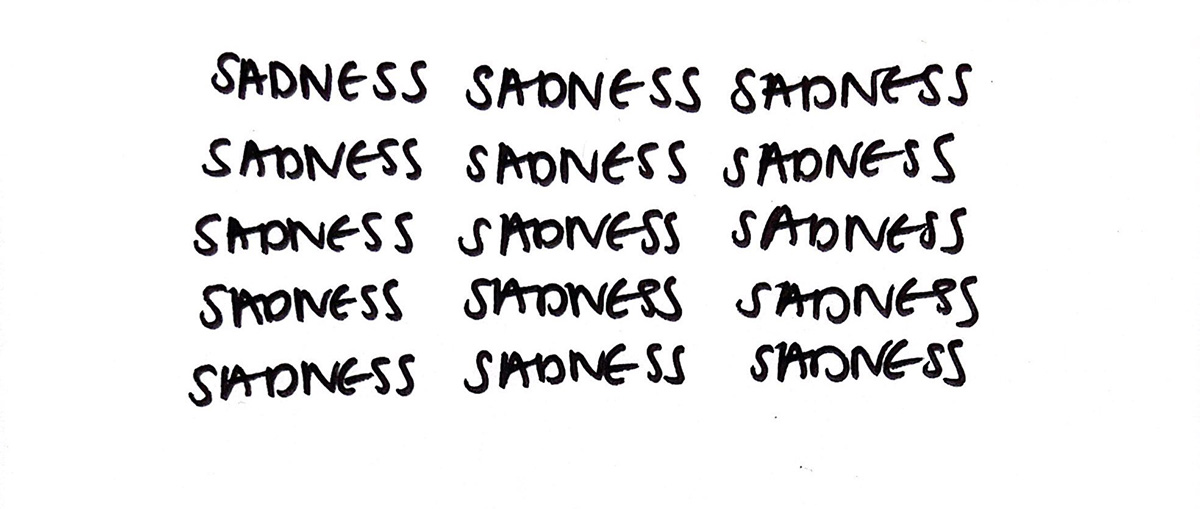 SADNESS SADNESS SADNESS
SADNESS SADNESS SADNESS
SADNESS SADNESS SADNESS
SADNESS SADNESS SADNESS
SADNESS SADNESS SADNESS